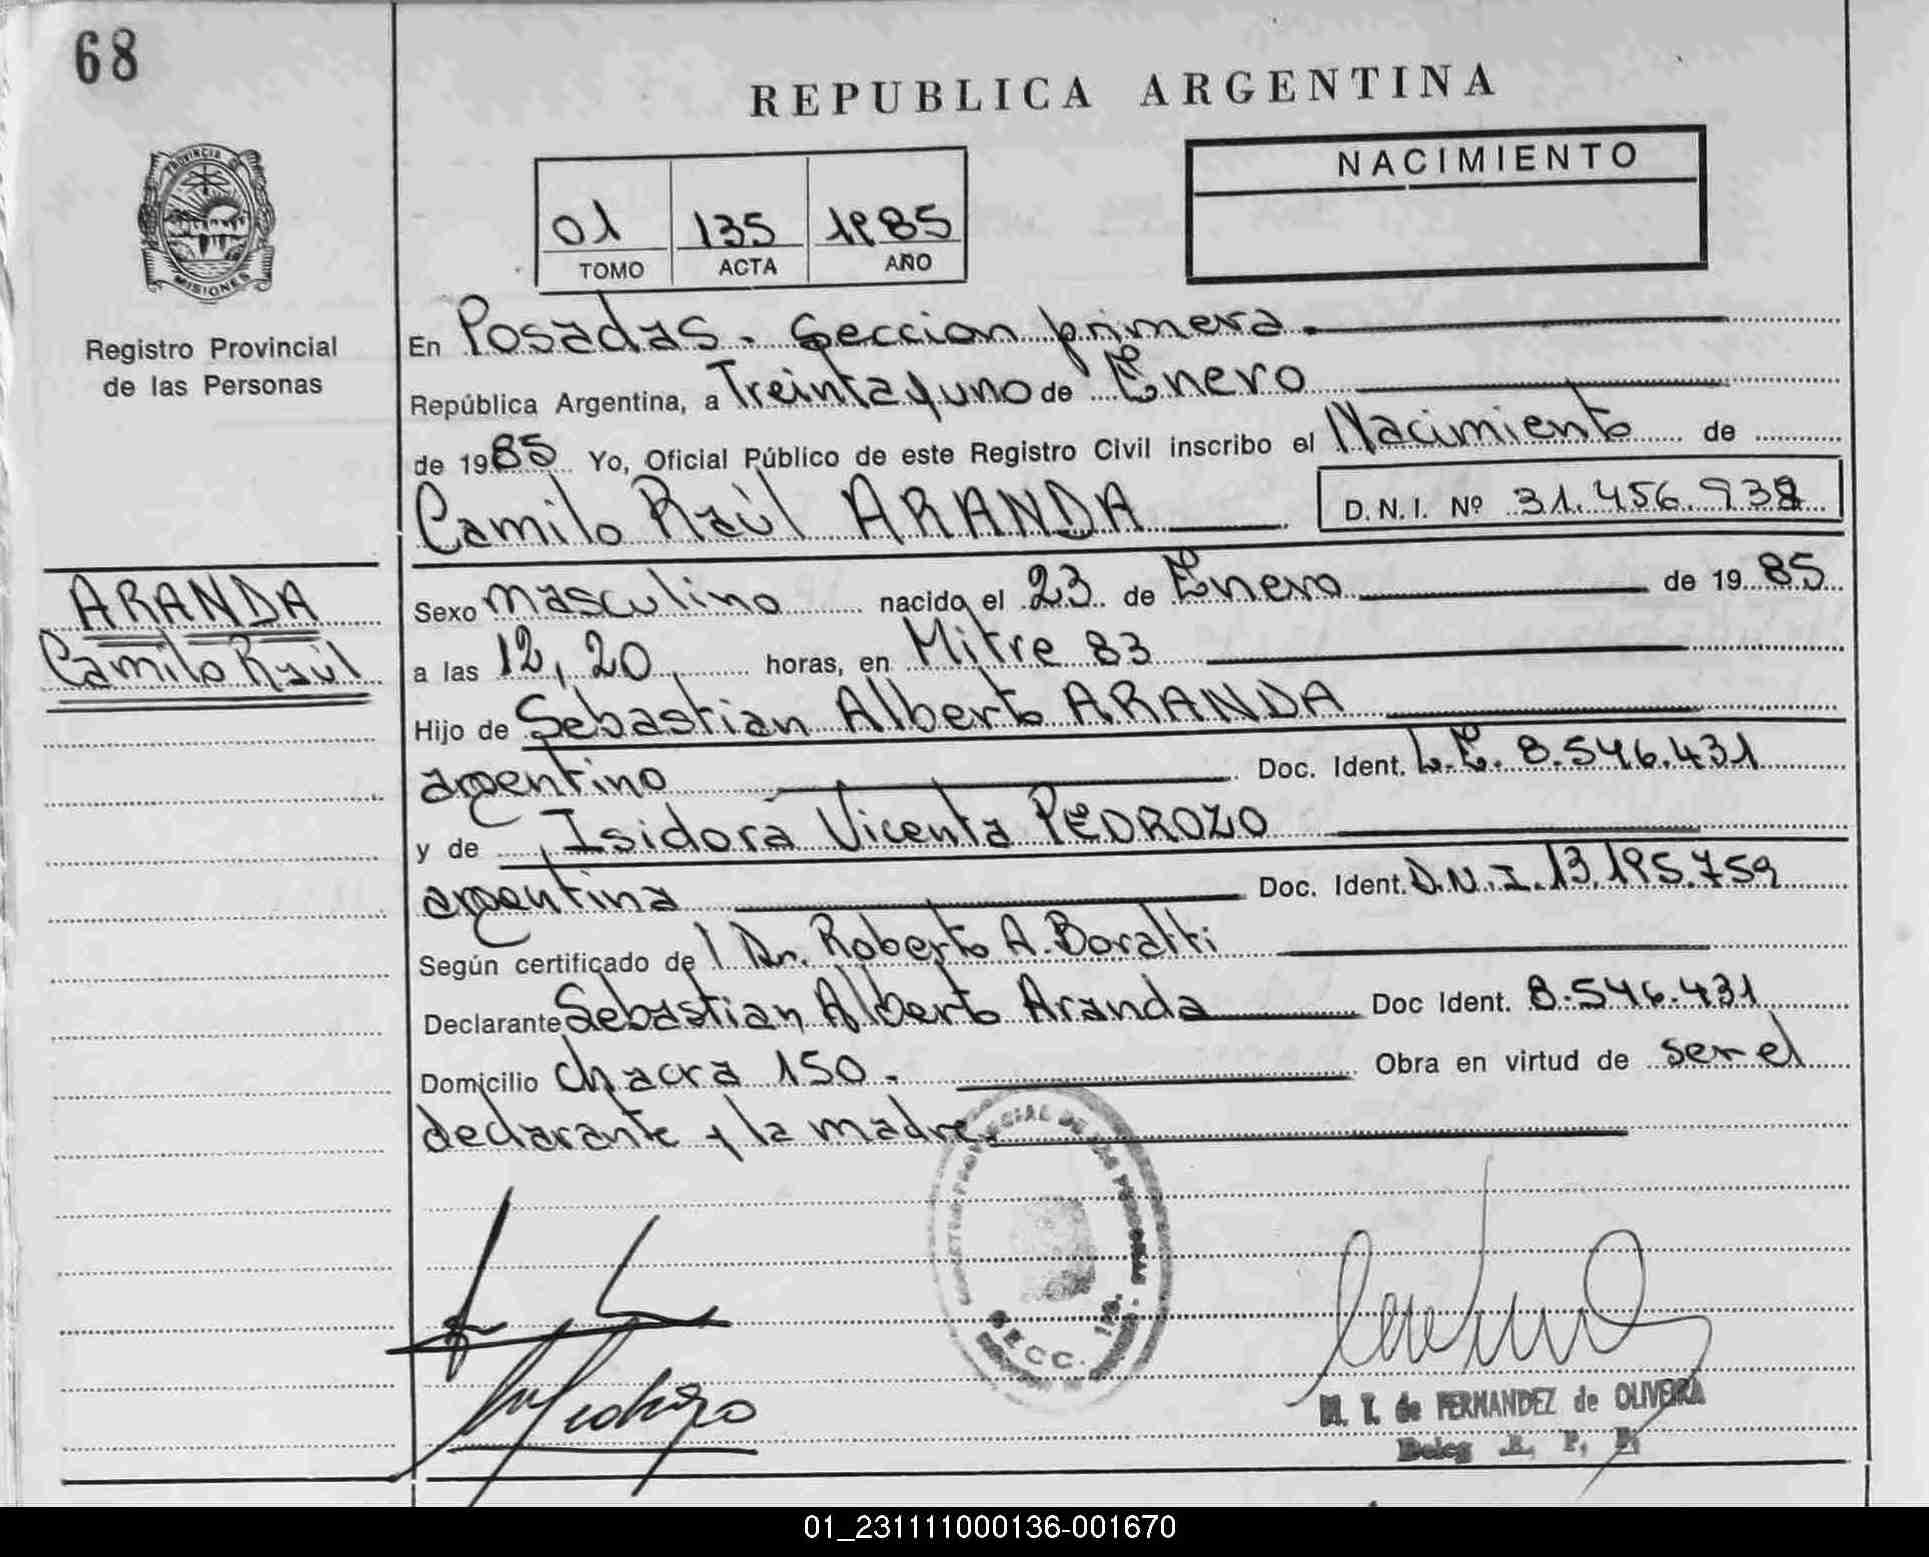 68
REPUBLICA ARGENTINA
PROVINCIA DE
MISIONES
NACIMIENTO
01 135 1985
TOMO ACTA AÑO
Registro Provincial
de las Personas
En Posadas. Seccion primera.
República Argentina, a Treinta y uno de Enero
de 1985 Yo, Oficial Público de este Registro Civil inscribo el Nacimiento de
Camilo Raúl ARANDA D.N.I. Nº 31.456.938
ARANDA
Camilo Raúl
Sexo masculino nacido el 23 de Enero de 1985
a las 12,20 horas, en Mitre 83
Hijo de Sebastian Alberto ARANDA
argentino Doc. Ident. L.E. 8.546.431
y de Isidora Vicenta PEDROZO
argentina Doc. Ident. D.N.I. 13.195.759
Según certificado del Dr. Roberto A. Boratti
Declarante Sebastian Alberto Aranda Doc Ident. 8.546.431
Domicilio chacra 150. Obra en virtud de ser el
declarante y la madre.
M. T. de FERNANDEZ de OLIVEIRA
Deleg R. P. P.
01_231111000136-001670